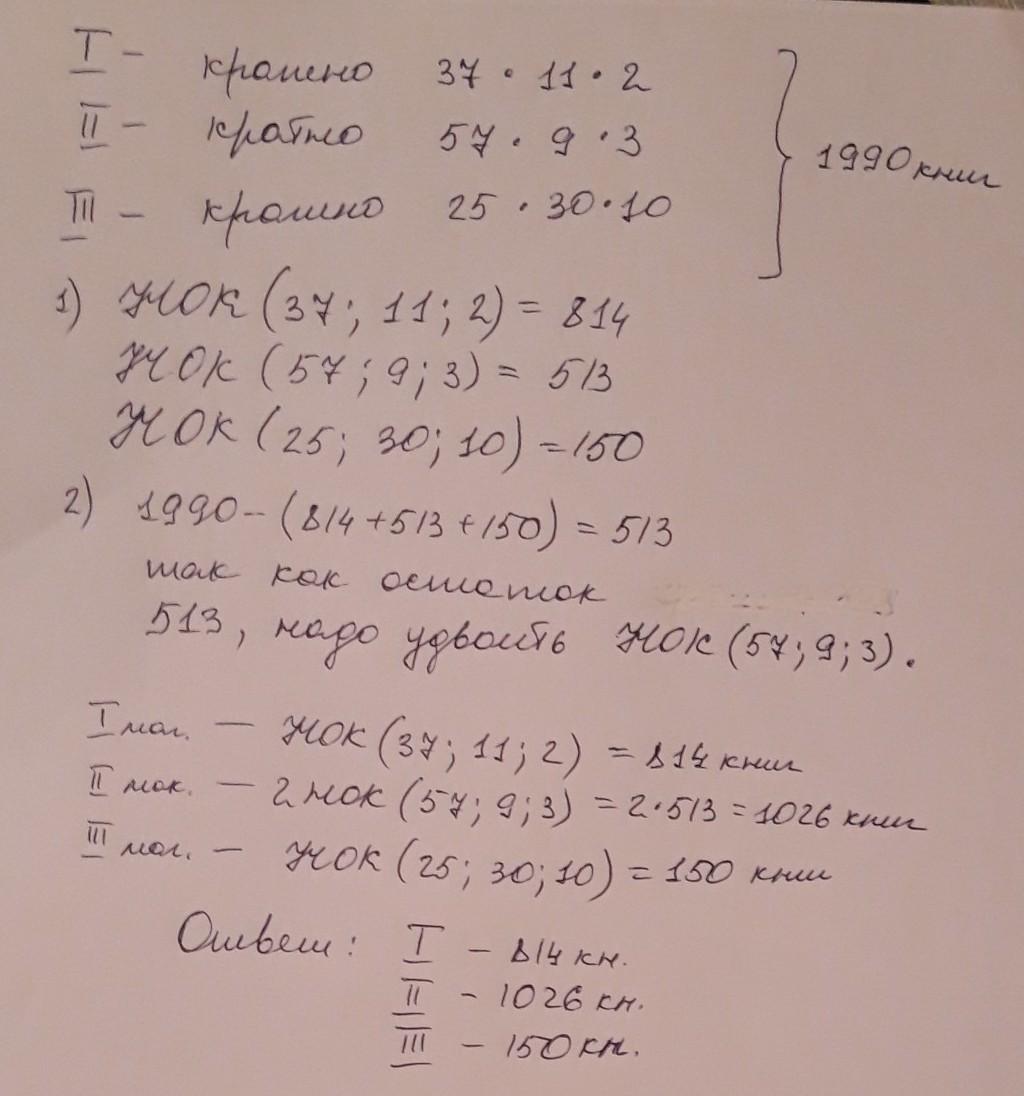 I - кратно 37 · 11 · 2
II - кратно 57 · 9 · 3
III - кратно 25 · 30 · 10
} 1990 книг
1) НОК (37; 11; 2) = 814
НОК (57; 9; 3) = 513
НОК (25; 30; 10) = 150
2) 1990 - (814 + 513 + 150) = 513
так как остаток
513, надо удвоить НОК (57; 9; 3).
I маг. — НОК (37; 11; 2) = 814 книг
II мак. — 2 НОК (57; 9; 3) = 2·513 = 1026 книг
III маг. — НОК (25; 30; 10) = 150 книг
Ответ: I - 814 кн.
II - 1026 кн.
III - 150 кн.